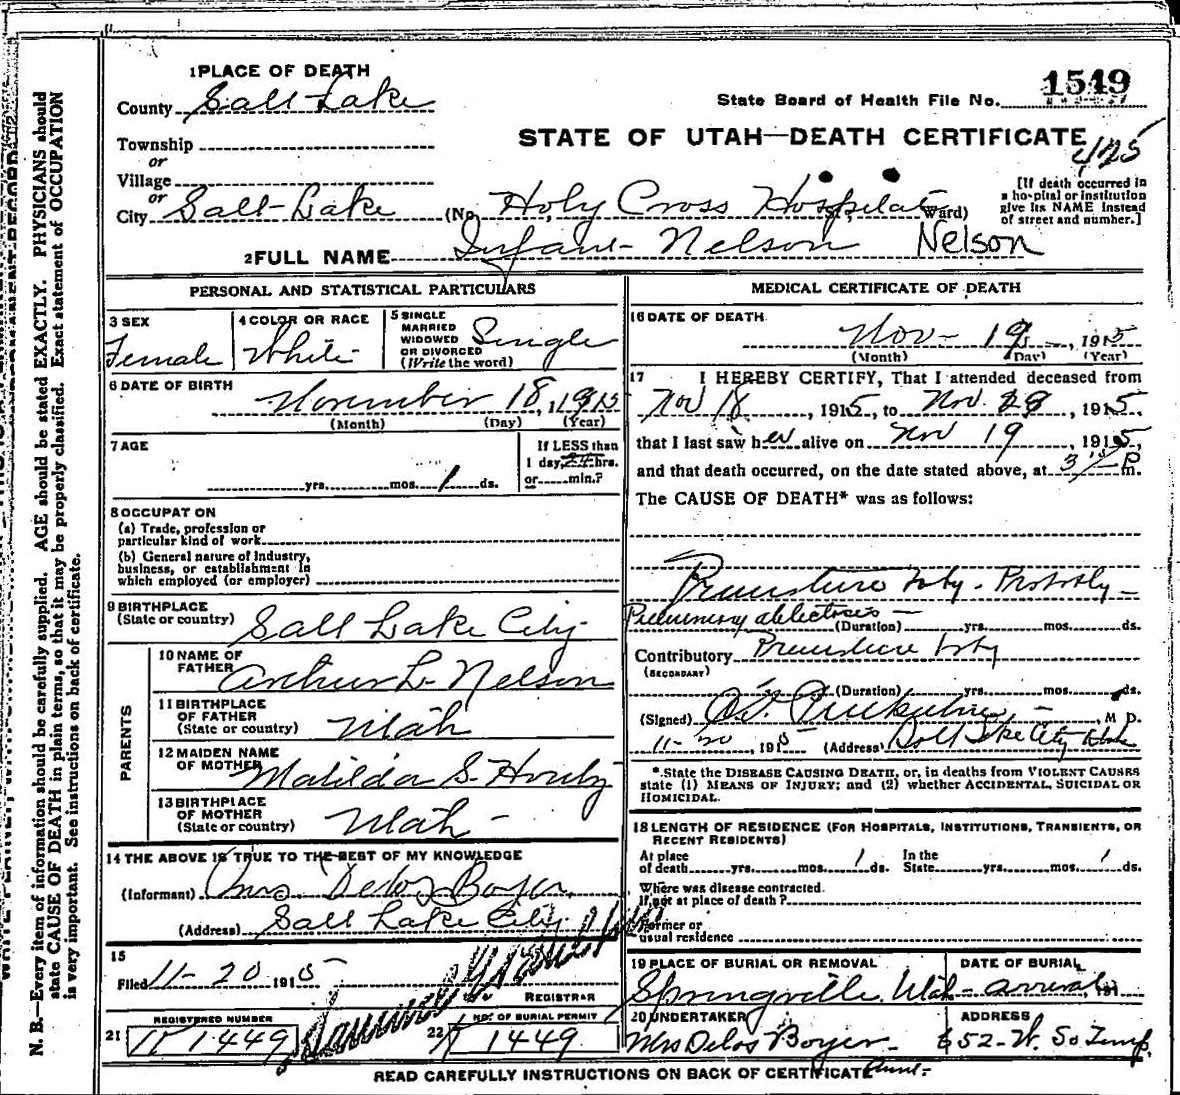 1 PLACE OF DEATH
County Salt Lake
State Board of Health File No. 1549
Township
or
STATE OF UTAH—DEATH CERTIFICATE
425
Village
or
City Salt Lake (No. Holy Cross Hospital St., Ward)
[If death occurred in a hospital or institution give its NAME instead of street and number.]
2 FULL NAME Infant Nelson Nelson
PERSONAL AND STATISTICAL PARTICULARS
3 SEX Female
4 COLOR OR RACE White
5 SINGLE MARRIED WIDOWED OR DIVORCED (Write the word) Single
6 DATE OF BIRTH November 18, 1915
(Month) (Day) (Year)
7 AGE
yrs. mos. 1 ds.
If LESS than
1 day, 24 hrs.
or min.?
8 OCCUPATION
(a) Trade, profession or
particular kind of work
(b) General nature of industry,
business, or establishment in
which employed (or employer)
9 BIRTHPLACE
(State or country) Salt Lake City
PARENTS
10 NAME OF
FATHER Arthur L. Nelson
11 BIRTHPLACE
OF FATHER
(State or country) Utah
12 MAIDEN NAME
OF MOTHER Matilda S.
13 BIRTHPLACE
OF MOTHER
(State or country) Utah -
14 THE ABOVE IS TRUE TO THE BEST OF MY KNOWLEDGE
(Informant) Mrs. Delos Boyer
(Address) Salt Lake City
15
Filed 11-20 1915
REGISTRAR
REGISTERED NUMBER
21 1449
NO. OF BURIAL PERMIT
22 1449
MEDICAL CERTIFICATE OF DEATH
16 DATE OF DEATH
Nov- 19 -, 1915
(Month) (Day) (Year)
17 I HEREBY CERTIFY, That I attended deceased from
Nov 18, 1915, to Nov. , 1915,
that I last saw her alive on Nov 19, 1915,
and that death occurred, on the date stated above, at 3 P m.
The CAUSE OF DEATH* was as follows:
Premature - Probably -
(Duration) yrs. mos. ds.
Contributory Premature
(SECONDARY)
(Duration) yrs. mos. ds.
(Signed) M D.
11-20, 1915 (Address) Salt Lake City Utah
*State the DISEASE CAUSING DEATH, or, in deaths from VIOLENT CAUSES
state (1) MEANS OF INJURY; and (2) whether ACCIDENTAL, SUICIDAL OR
HOMICIDAL.
18 LENGTH OF RESIDENCE (FOR HOSPITALS, INSTITUTIONS, TRANSIENTS, OR
RECENT RESIDENTS)
At place of death yrs. mos. 1 ds. In the State yrs. mos. 1 ds.
Where was disease contracted.
if not at place of death?
Former or
usual residence
19 PLACE OF BURIAL OR REMOVAL
Springville Utah -
DATE OF BURIAL
arrival, 191
20 UNDERTAKER
Mrs Delos Boyer -
ADDRESS
652-W. So Temp.
Aunt-
READ CAREFULLY INSTRUCTIONS ON BACK OF CERTIFICATE
N. B.—Every item of information should be carefully supplied. AGE should be stated EXACTLY. PHYSICIANS should
state CAUSE OF DEATH in plain terms, so that it may be properly classified. Exact statement of OCCUPATION
is very important. See instructions on back of certificate.